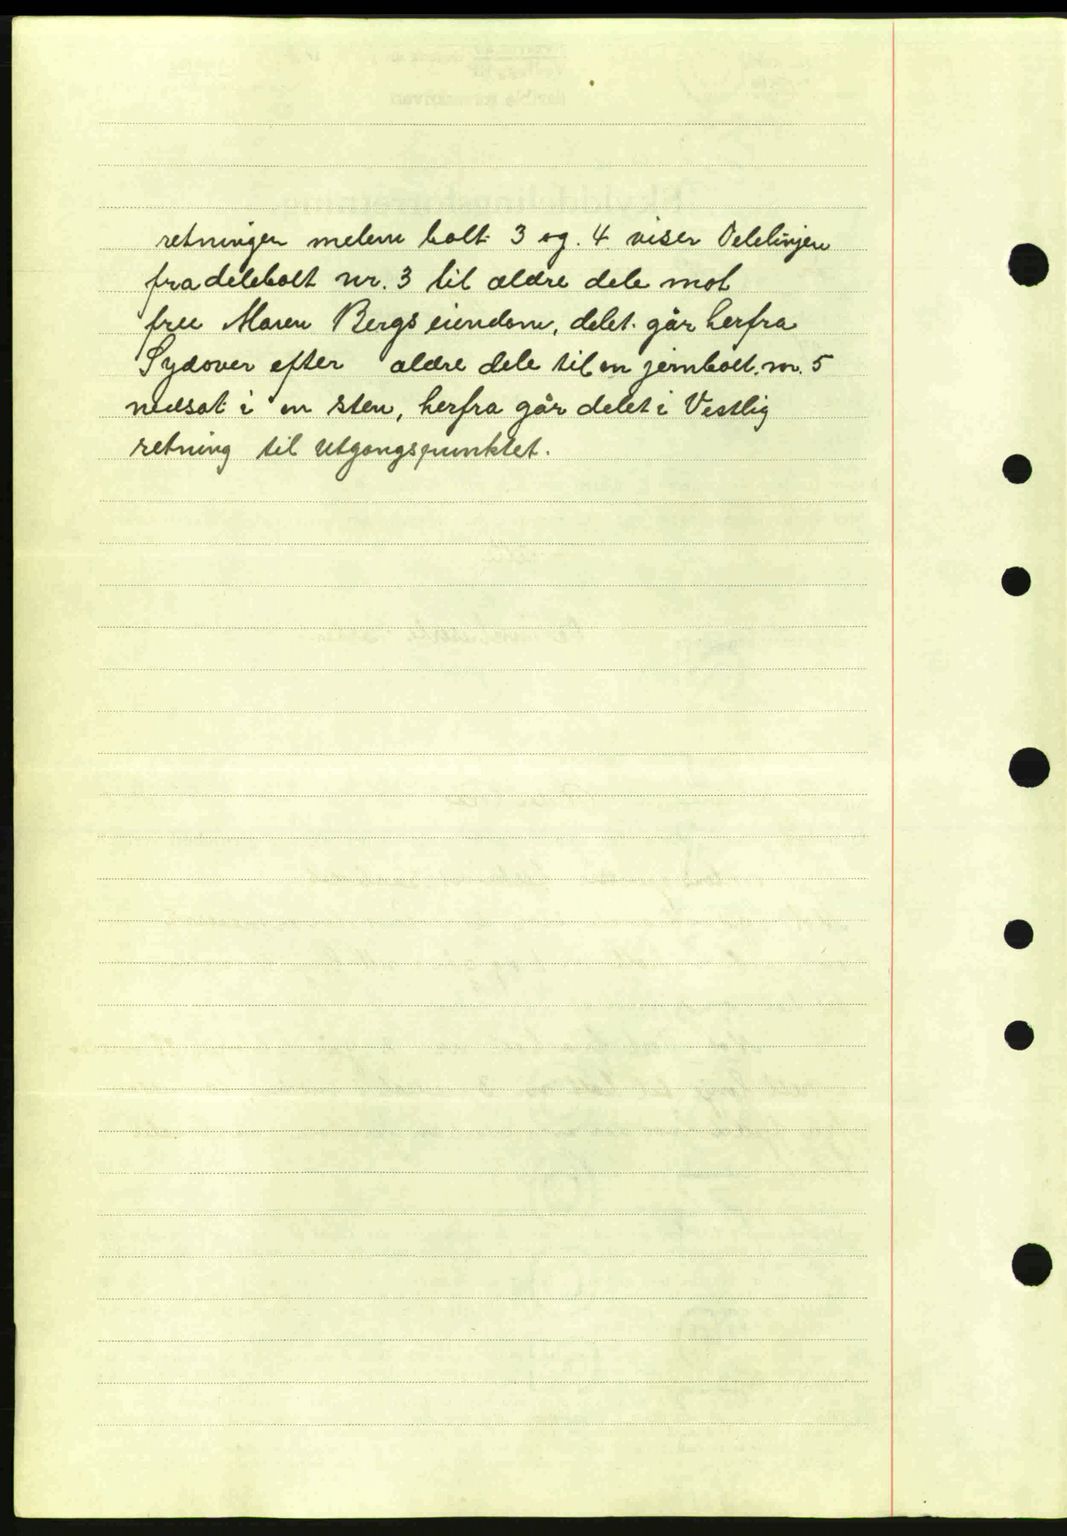 retningen melem bolt 3 og. 4 viser Delelinjen
fra delebolt nr. 3 til ældre dele mot
frue Maren Bergs eiendom, delet. går herfra
Sydover efter ældre dele til en jernbolt. nr. 5
nedsat i en sten, herfra går delet i Vestlig
retning til utgangspunktet.